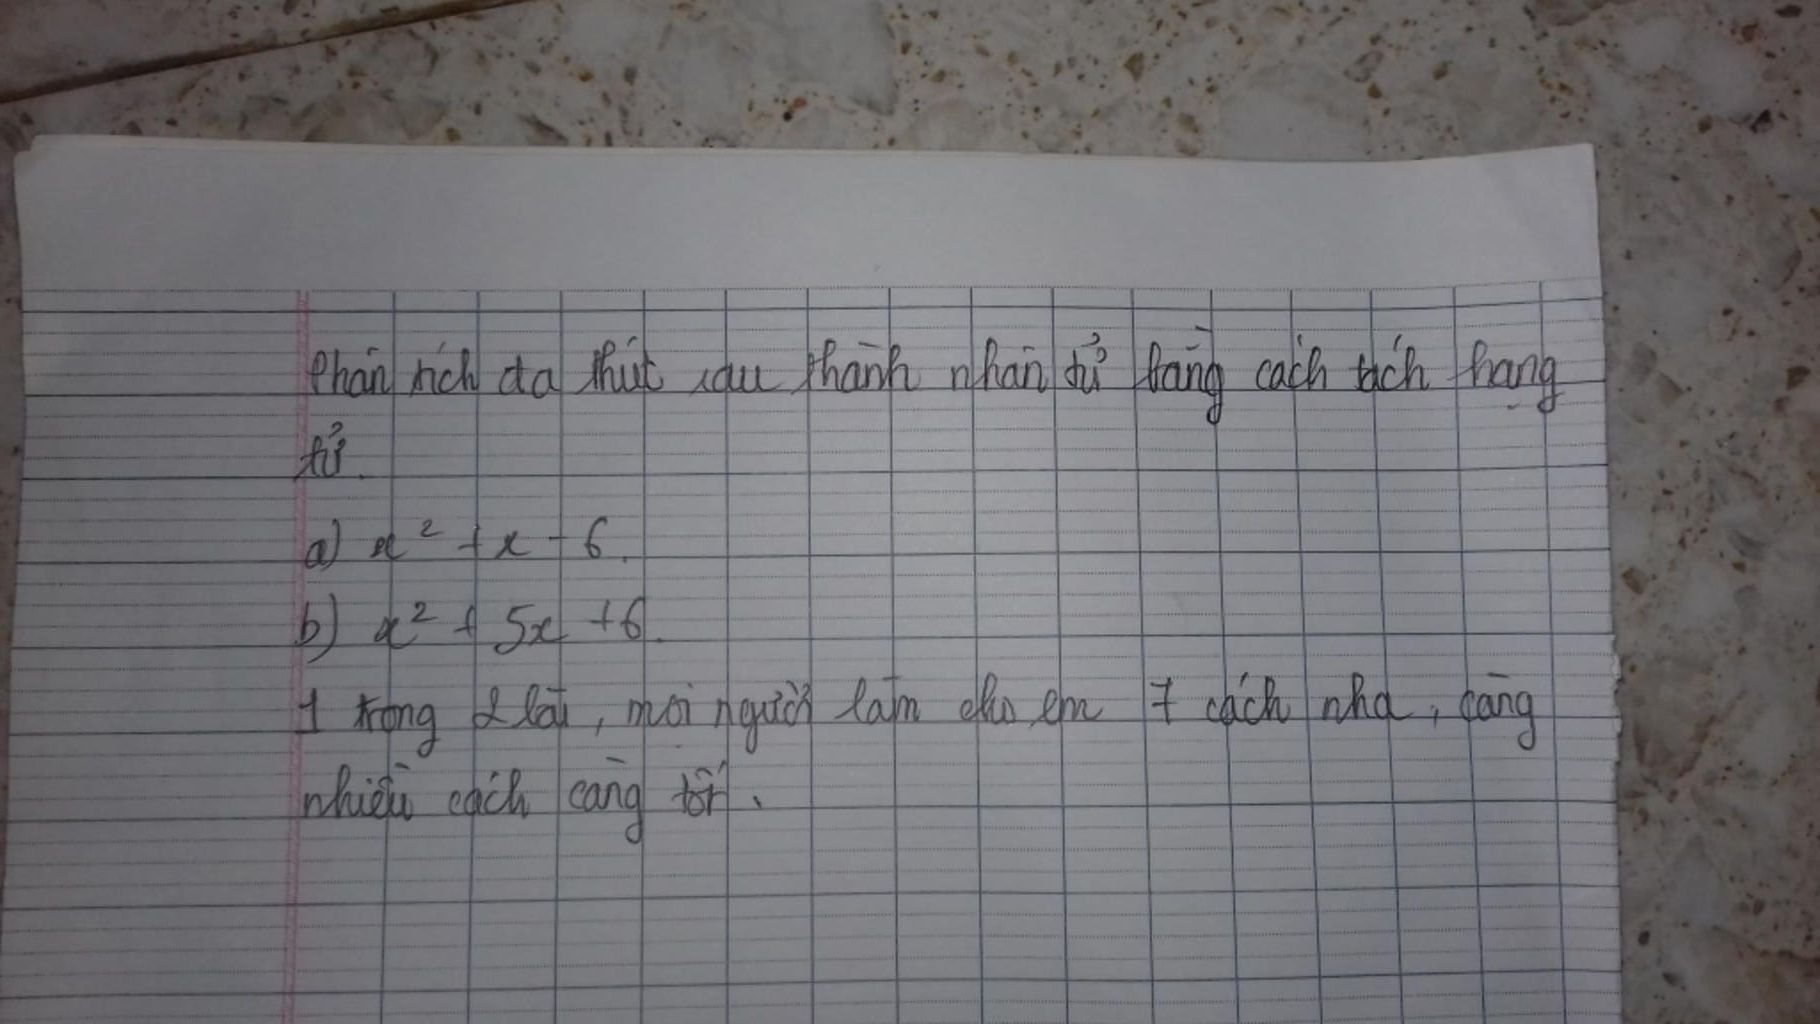 Phân tích đa thức sau thành nhân tử bằng cách tách hạng
tử.
a) x² + x - 6.
b) x² + 5x + 6.
1 trong 2 bài, mọi người làm cho em 7 cách nha, càng
nhiều cách càng tốt.